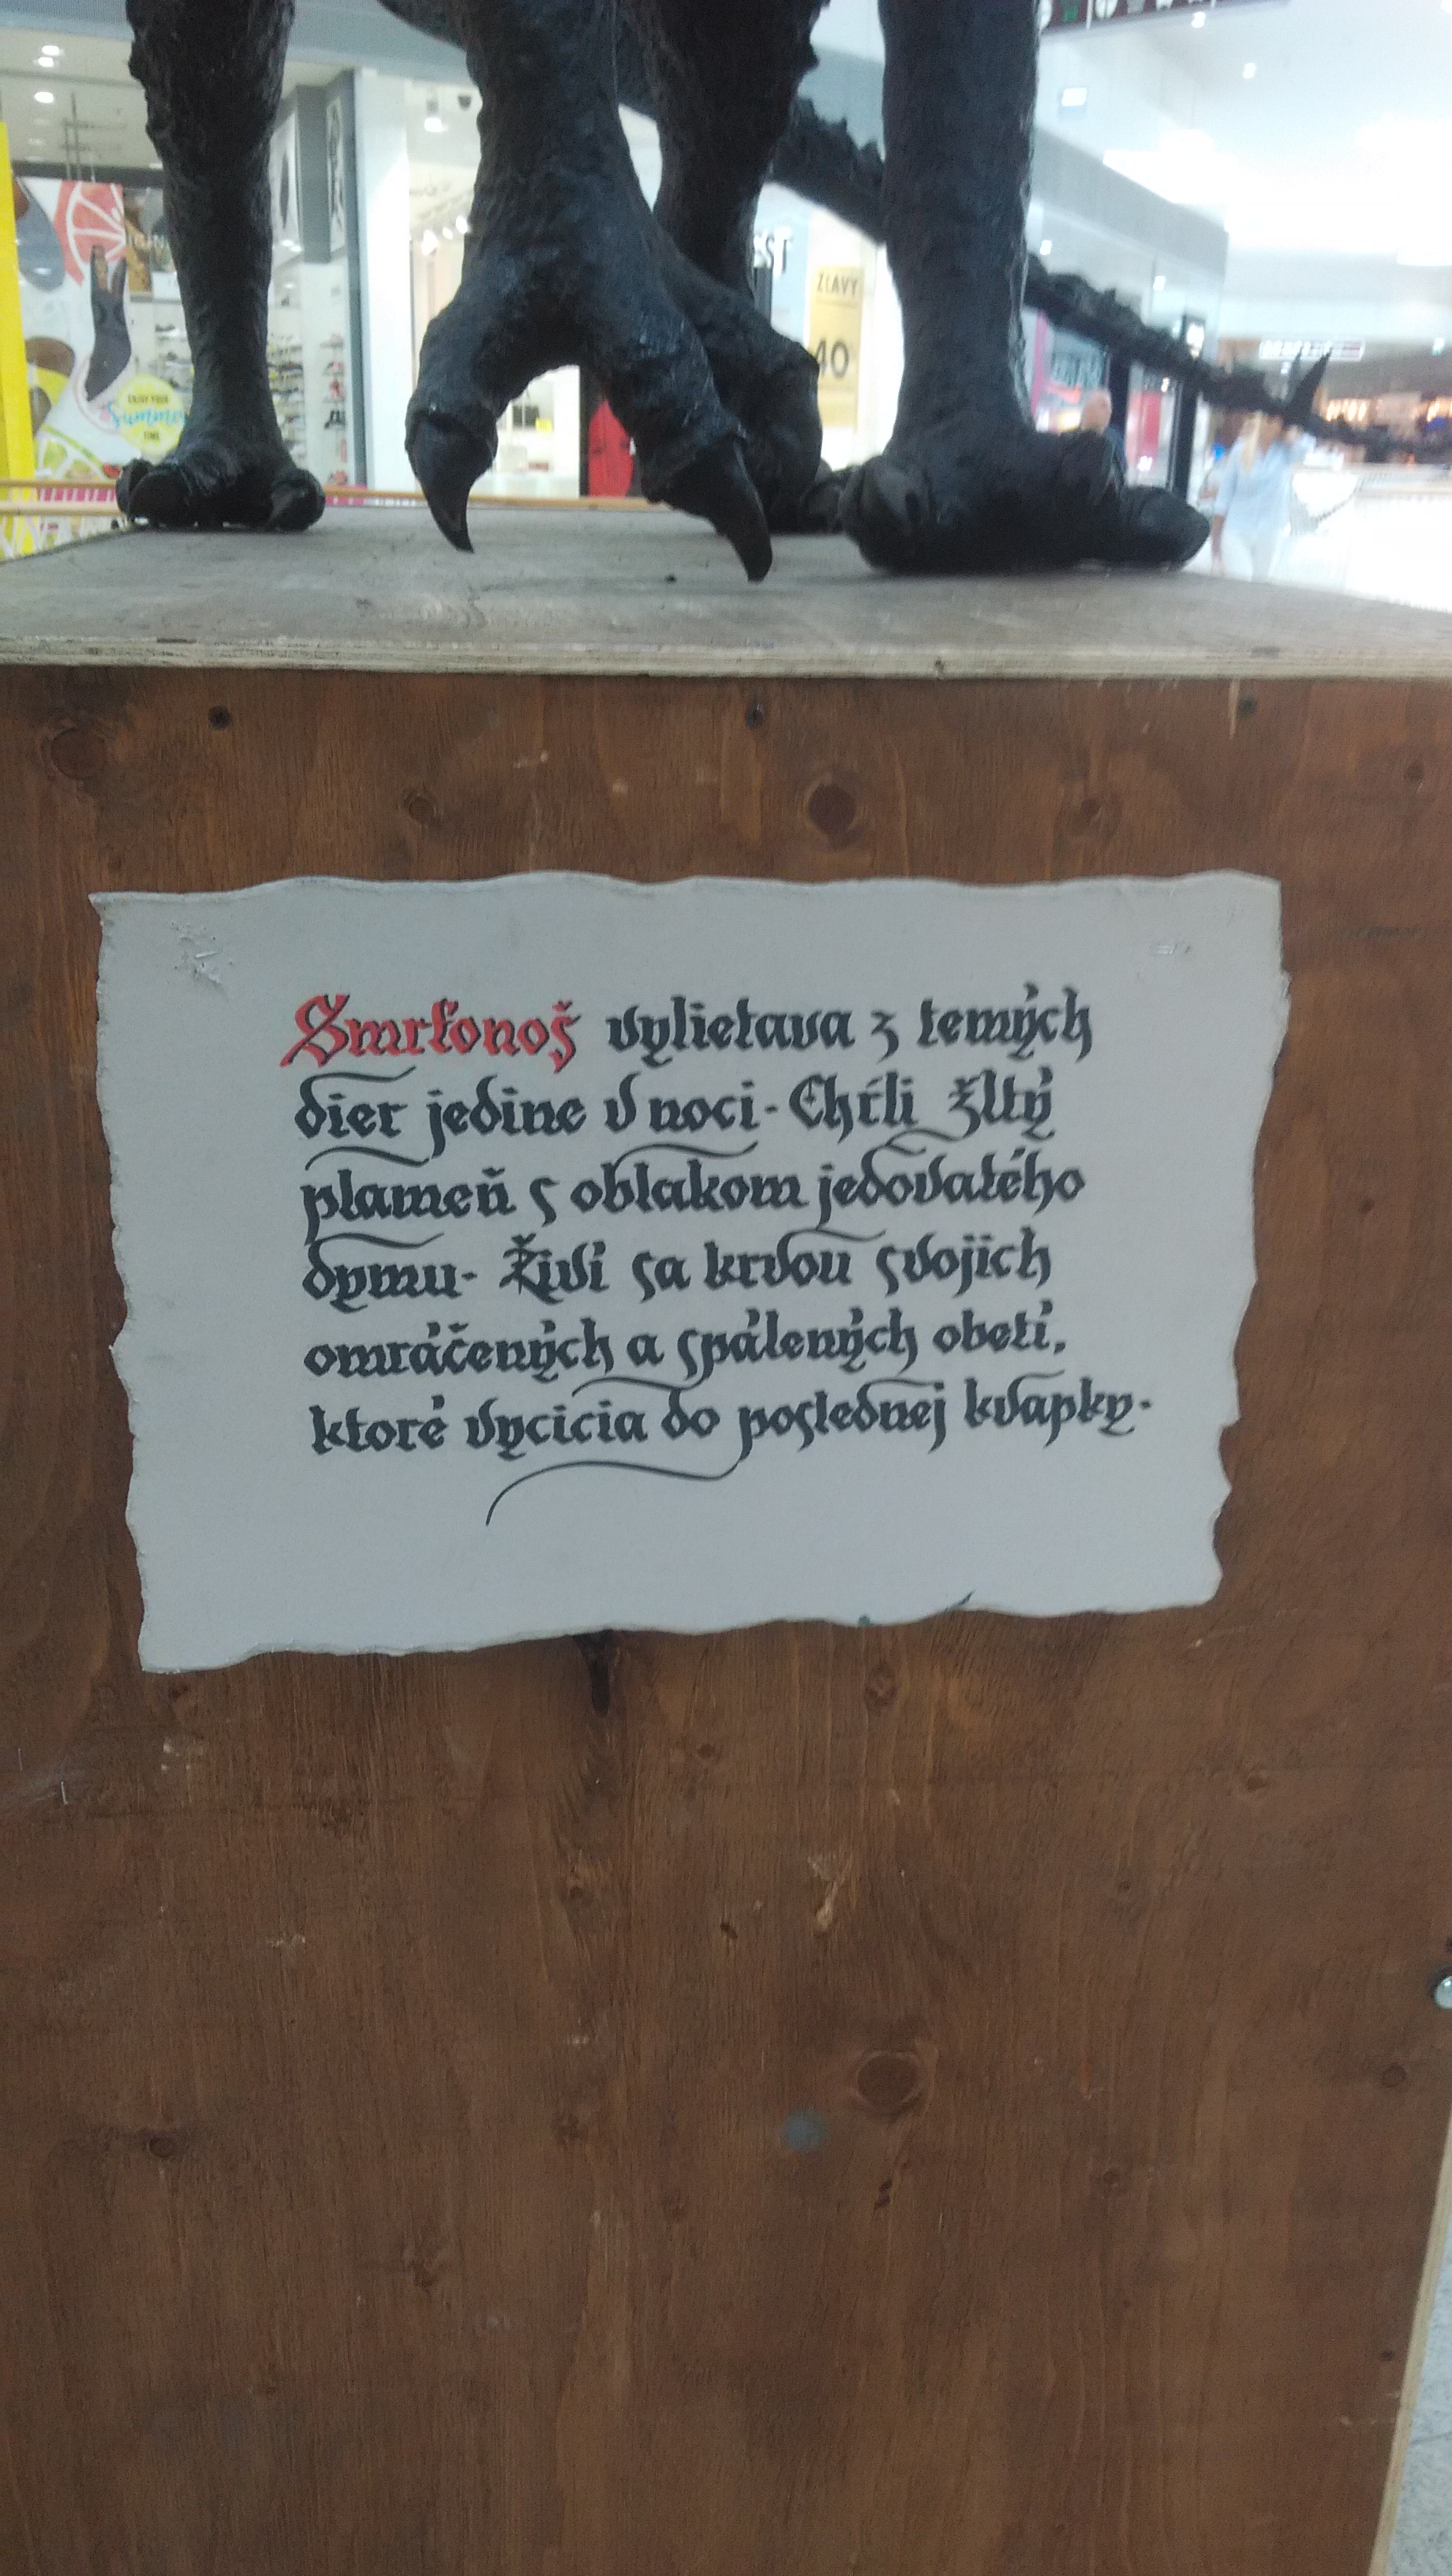 Smrťonoš vylietava z temých
dier jedine v noci. Chŕli žltý
plameň s oblakom jedovatého
dymu. Živí sa krvou svojich
omráčených a spálených obetí,
ktoré vycicia do poslednej kvapky.
ZĽAVY
40
ENJOY YOUR
Summer
TIME